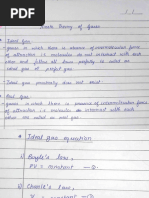 Kinetic Theory of Gases
* Ideal Gas
gases in which there is absence of intermolecular force
of attraction i.e. molecules do not interact with each
other and follow all laws perfectly is called as
ideal gas or perfect gas.
Ideal gas practically does not exist.
* Real Gas
gases in which there is presence of intermolecular forces
of attraction i.e. molecules do interact with each
other are called as real gas.
* Ideal gas equation
i) Boyle's law,
PV = constant — ①
ii) Charle's Law,
V/T = constant — ②